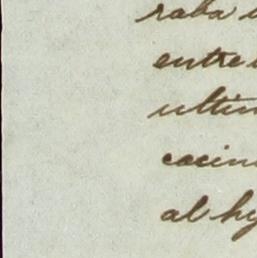 raba
entre
ultim
cocin
al hy